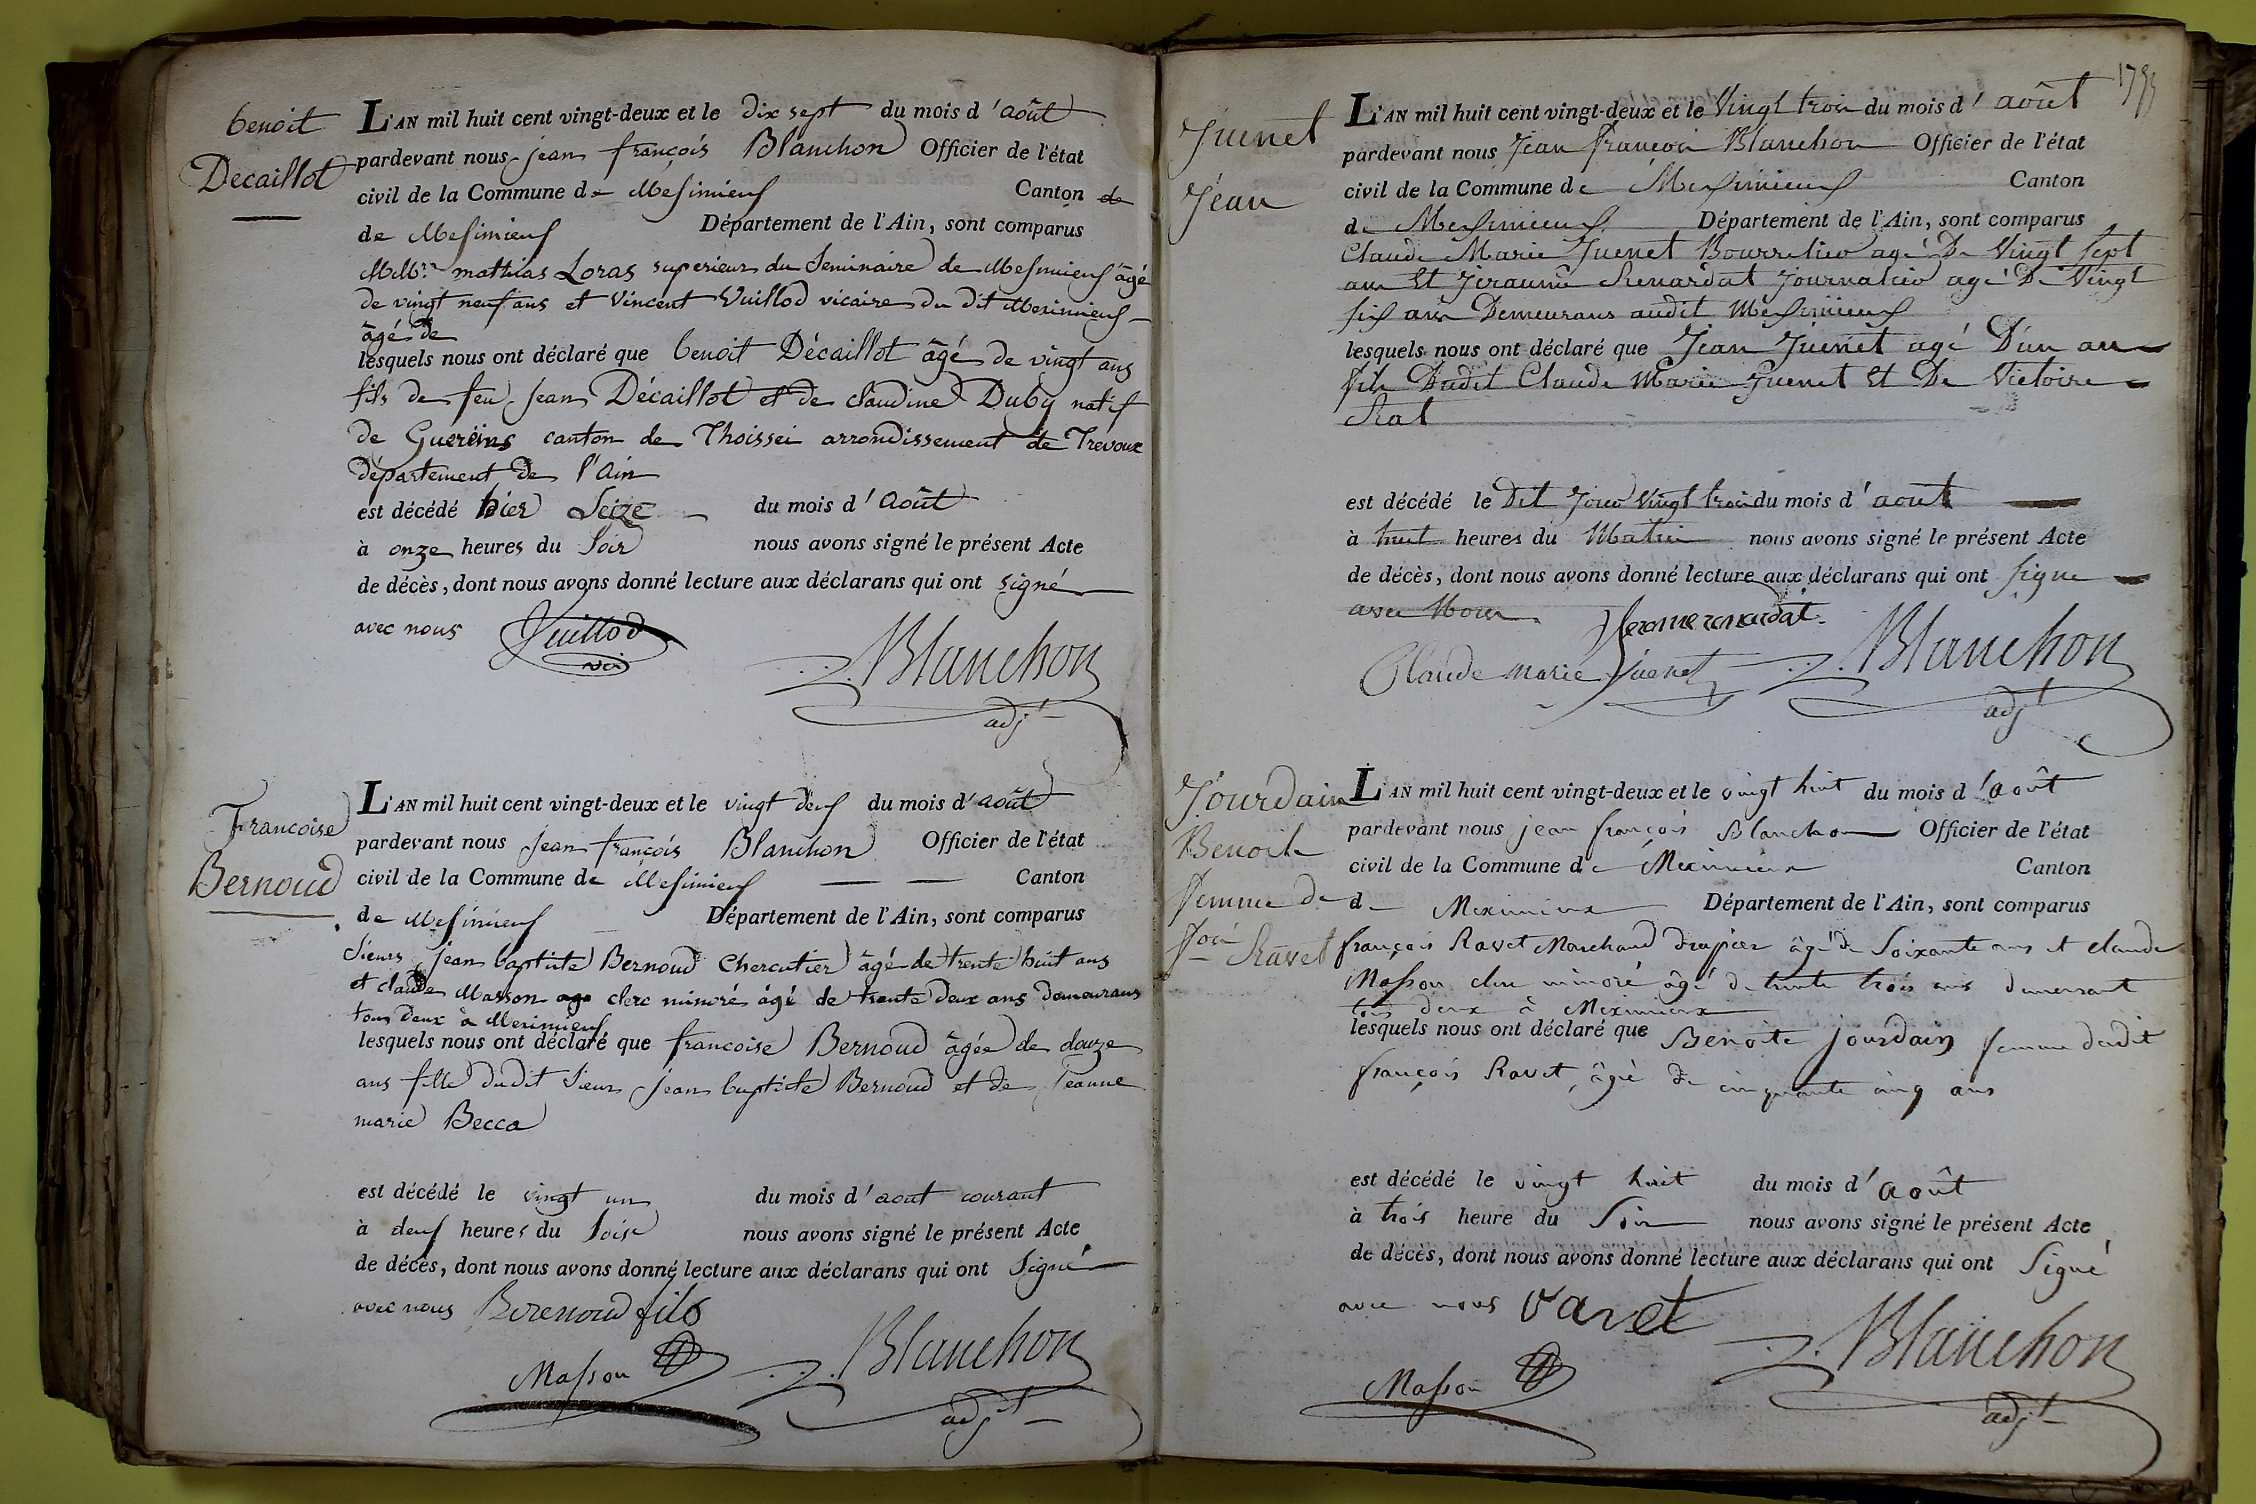 benoit
Decaillot
L'AN mil huit cent vingt-deux et le dix sept du mois d'août
pardevant nous jean françois Blanchon Officier de l'état
civil de la Commune de Mesimieuf Canton de
de Mesimieuf Département de l'Ain, sont comparus
MMrs mathias Loras superieur du Seminaire de Mesimieuf âgé
de vingt neuf ans et Vincent Vuillod vicaire du dit Meximieuf
âgé de
lesquels nous ont déclaré que benoit Décaillot âgé de vingt ans
fils de feu jean Décaillot et de claudine Duby natif
de Guereins canton de Thoissei arrondissement de Trevoux
département de l'Ain
est décédé hier Seize du mois d'Août
à onze heures du Soir nous avons signé le présent Acte
de décès, dont nous avons donné lecture aux déclarans qui ont signé
avec nous Vuillod
vic
Blanchon
adjt
Francoise
Bernoud
L'AN mil huit cent vingt-deux et le vingt deuf du mois d'août
pardevant nous jean françois Blanchon Officier de l'état
civil de la Commune de Mesimieuf Canton
de Mesimieuf Département de l'Ain, sont comparus
Sieurs jean baptiste Bernoud Chercutier âgé de trente huit ans
et claude Masson age clerc minoré âgé de trente deux ans demeurans
tous deux à Meximieuf
lesquels nous ont déclaré que francoise Bernoud âgée de douze
ans fille dudit Sieur jean baptiste Bernoud et de jeanne
marie Becca
est décédé le vingt un du mois d'aout courant
à deuf heures du Soir nous avons signé le présent Acte
de décès, dont nous avons donné lecture aux déclarans qui ont Signé
avec nous Berenoud fils
Masson
Blanchon
adjt
Juenet
Jean
L'AN mil huit cent vingt-deux et le Vingt trois du mois d'août
pardevant nous Jean François Blanchon Officier de l'état
civil de la Commune de Messimieuf Canton
de Messimieuf Département de l'Ain, sont comparus
Claude Marie Juenet Bourrelier agé De Vingt sept
ans Et Jeraume Renardat Journalier agé De Vingt
six ans Demeurans audit Messimieuf
lesquels nous ont déclaré que Jean Juenet agé D'un an
fils Dudit Claude Marie Juenet Et De Victoire
Rat
est décédé le Dit Jour Vingt trois du mois d'aout
à huit heures du Matin nous avons signé le présent Acte
de décès, dont nous avons donné lecture aux déclarans qui ont signe
avec Nous. Jerome renardat.
Claude Marie Juenet
Blanchon
adjt
Jourdain
Benoite
femme de
foié Ravet
L'AN mil huit cent vingt-deux et le vingt huit du mois d'août
pardevant nous jean françois Blanchon Officier de l'état
civil de la Commune de Meximieux Canton
de Meximieux Département de l'Ain, sont comparus
françois Ravet Marchand drapier âgé de Soixante ans et claude
Masson clerc minoré âgé de trente trois ans demeurant
tous deux à Meximieux
lesquels nous ont déclaré que Benoite Jourdain femme dudit
françois Ravet, âgée de cinquante cinq ans
est décédé le vingt huit du mois d'août
à trois heure du Soir nous avons signé le présent Acte
de décès, dont nous avons donné lecture aux déclarans qui ont Signé
avec nous Varet
Masson
Blanchon
adjt